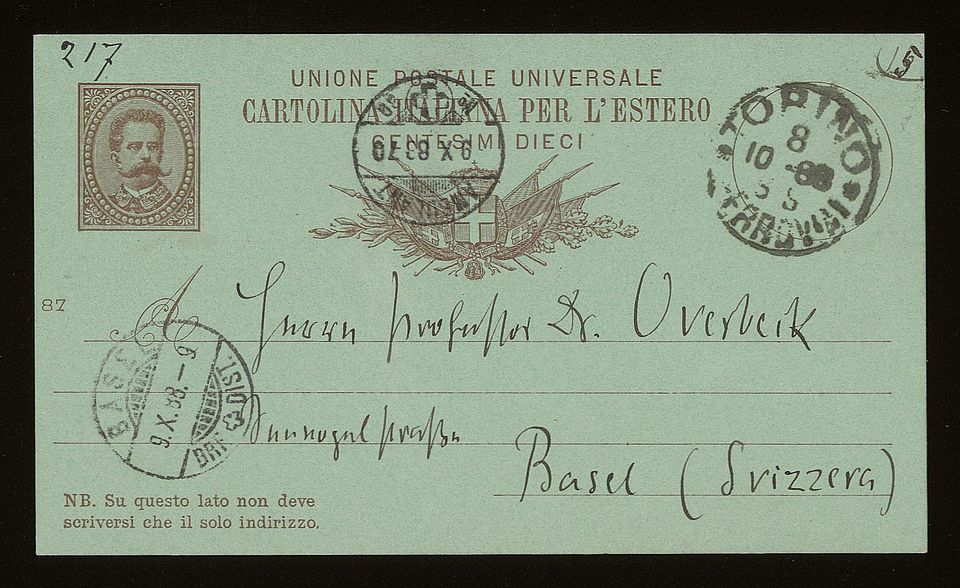 217
15
UNIONE POSTALE UNIVERSALE
CARTOLINA ITALIANA PER L'ESTERO
CENTESIMI DIECI
9 X 88
TORINO
8
10 - 88
FERROVIA
87
A Herrn Professor Dr. Overbeck
BASEL
9.X.88.-9
BRF. DIST.
Sennogelstraße
Basel (Svizzera)
NB. Su questo lato non deve
scriversi che il solo indirizzo.